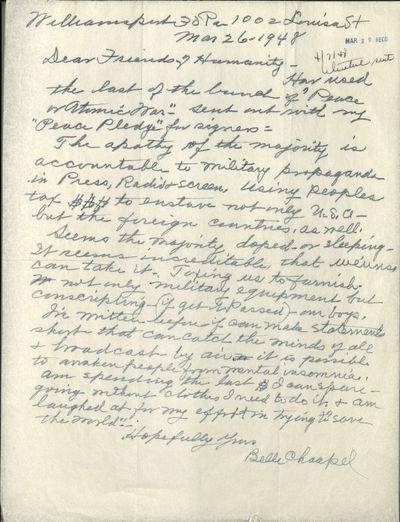 Williamsport 30 Pa 1002 Louisa St
Mar 26-1948
MAR 29 RECD
4/7/48
literature sent
Dear Friends of Humanity -
Have used
the last of the bunch of "Peace
or Atomic War" sent out with my
"Peace Pledge" for signers =
The apathy of the majority is
accountable to military propaganda
in Press, Radio + screen, using peoples
tax $$$ to enslave not only U.S.A -
but the foreign countries as well.
Seems the majority doped or sleeping -
It seems increditable that we
can take it. Taxing us to furnish
not only military equipment but
conscripting (if get it passed) our boys.
written before if can make statements
short that can catch the minds of all
+ broadcast by air it is possible
to awaken people from mental insomnia,
am spending the last $ I can spare -
going without clothes I need to do it + am
laughed at for my effort in trying to "save
the world" -
Hopefully Yours
Belle Chaapel